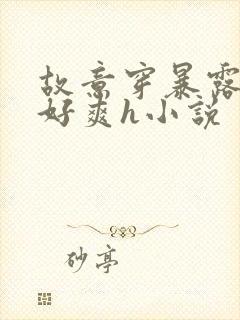 故意穿暴露
好爽h小说
砂亭